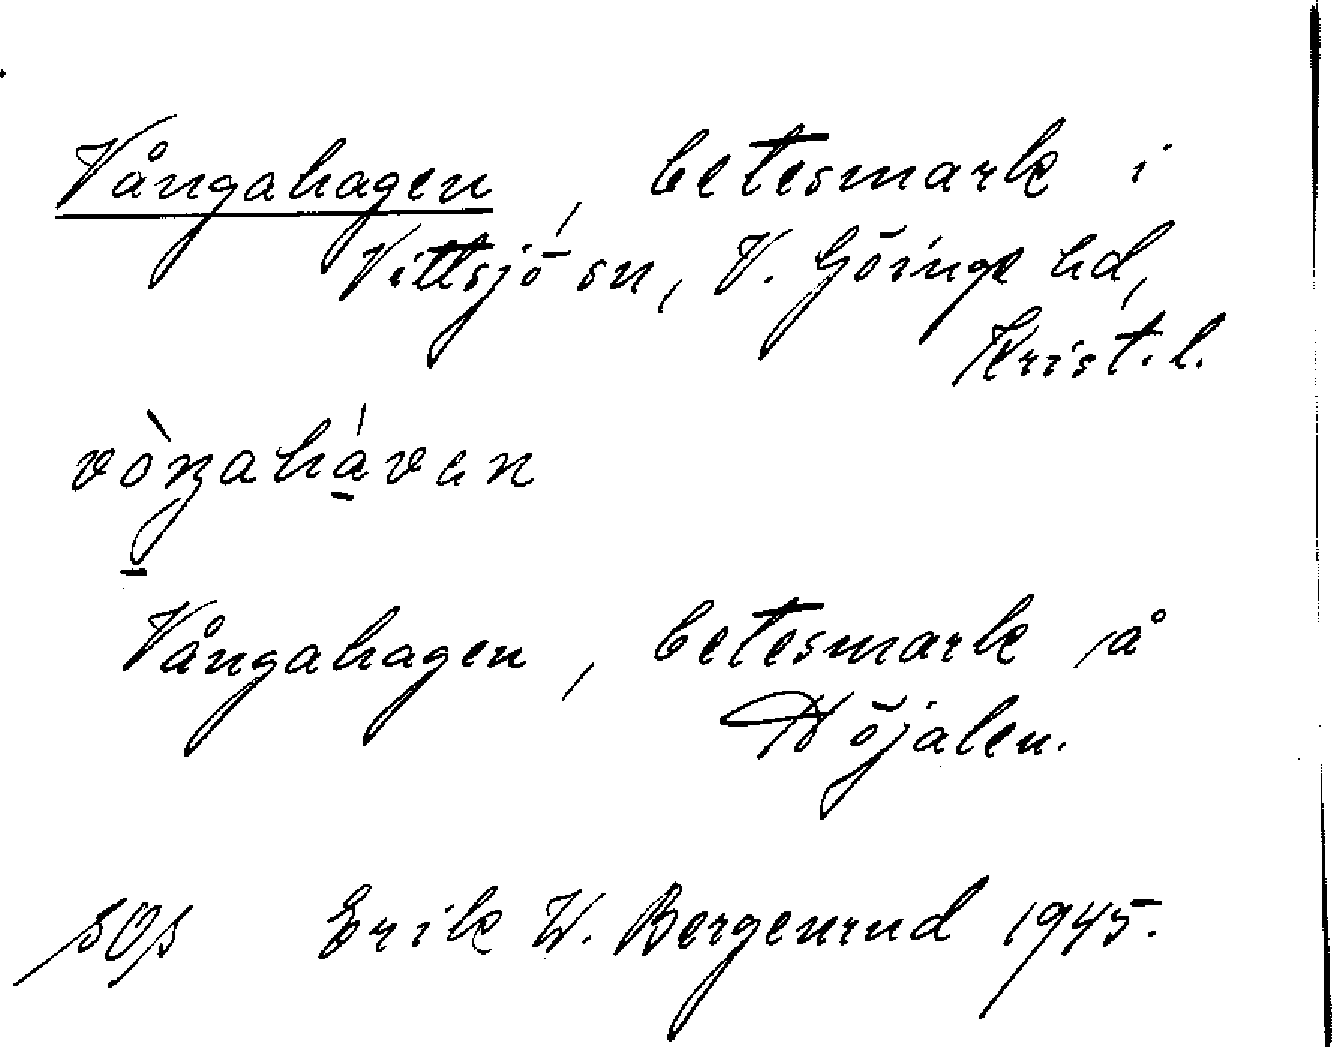 Vångahagen, betesmark i
Vittsjö sn, V. Göinge hd,
Krist. l.
Vångahagen, betesmark å
Höjalen.
Erik W. Bergenrud 1945.